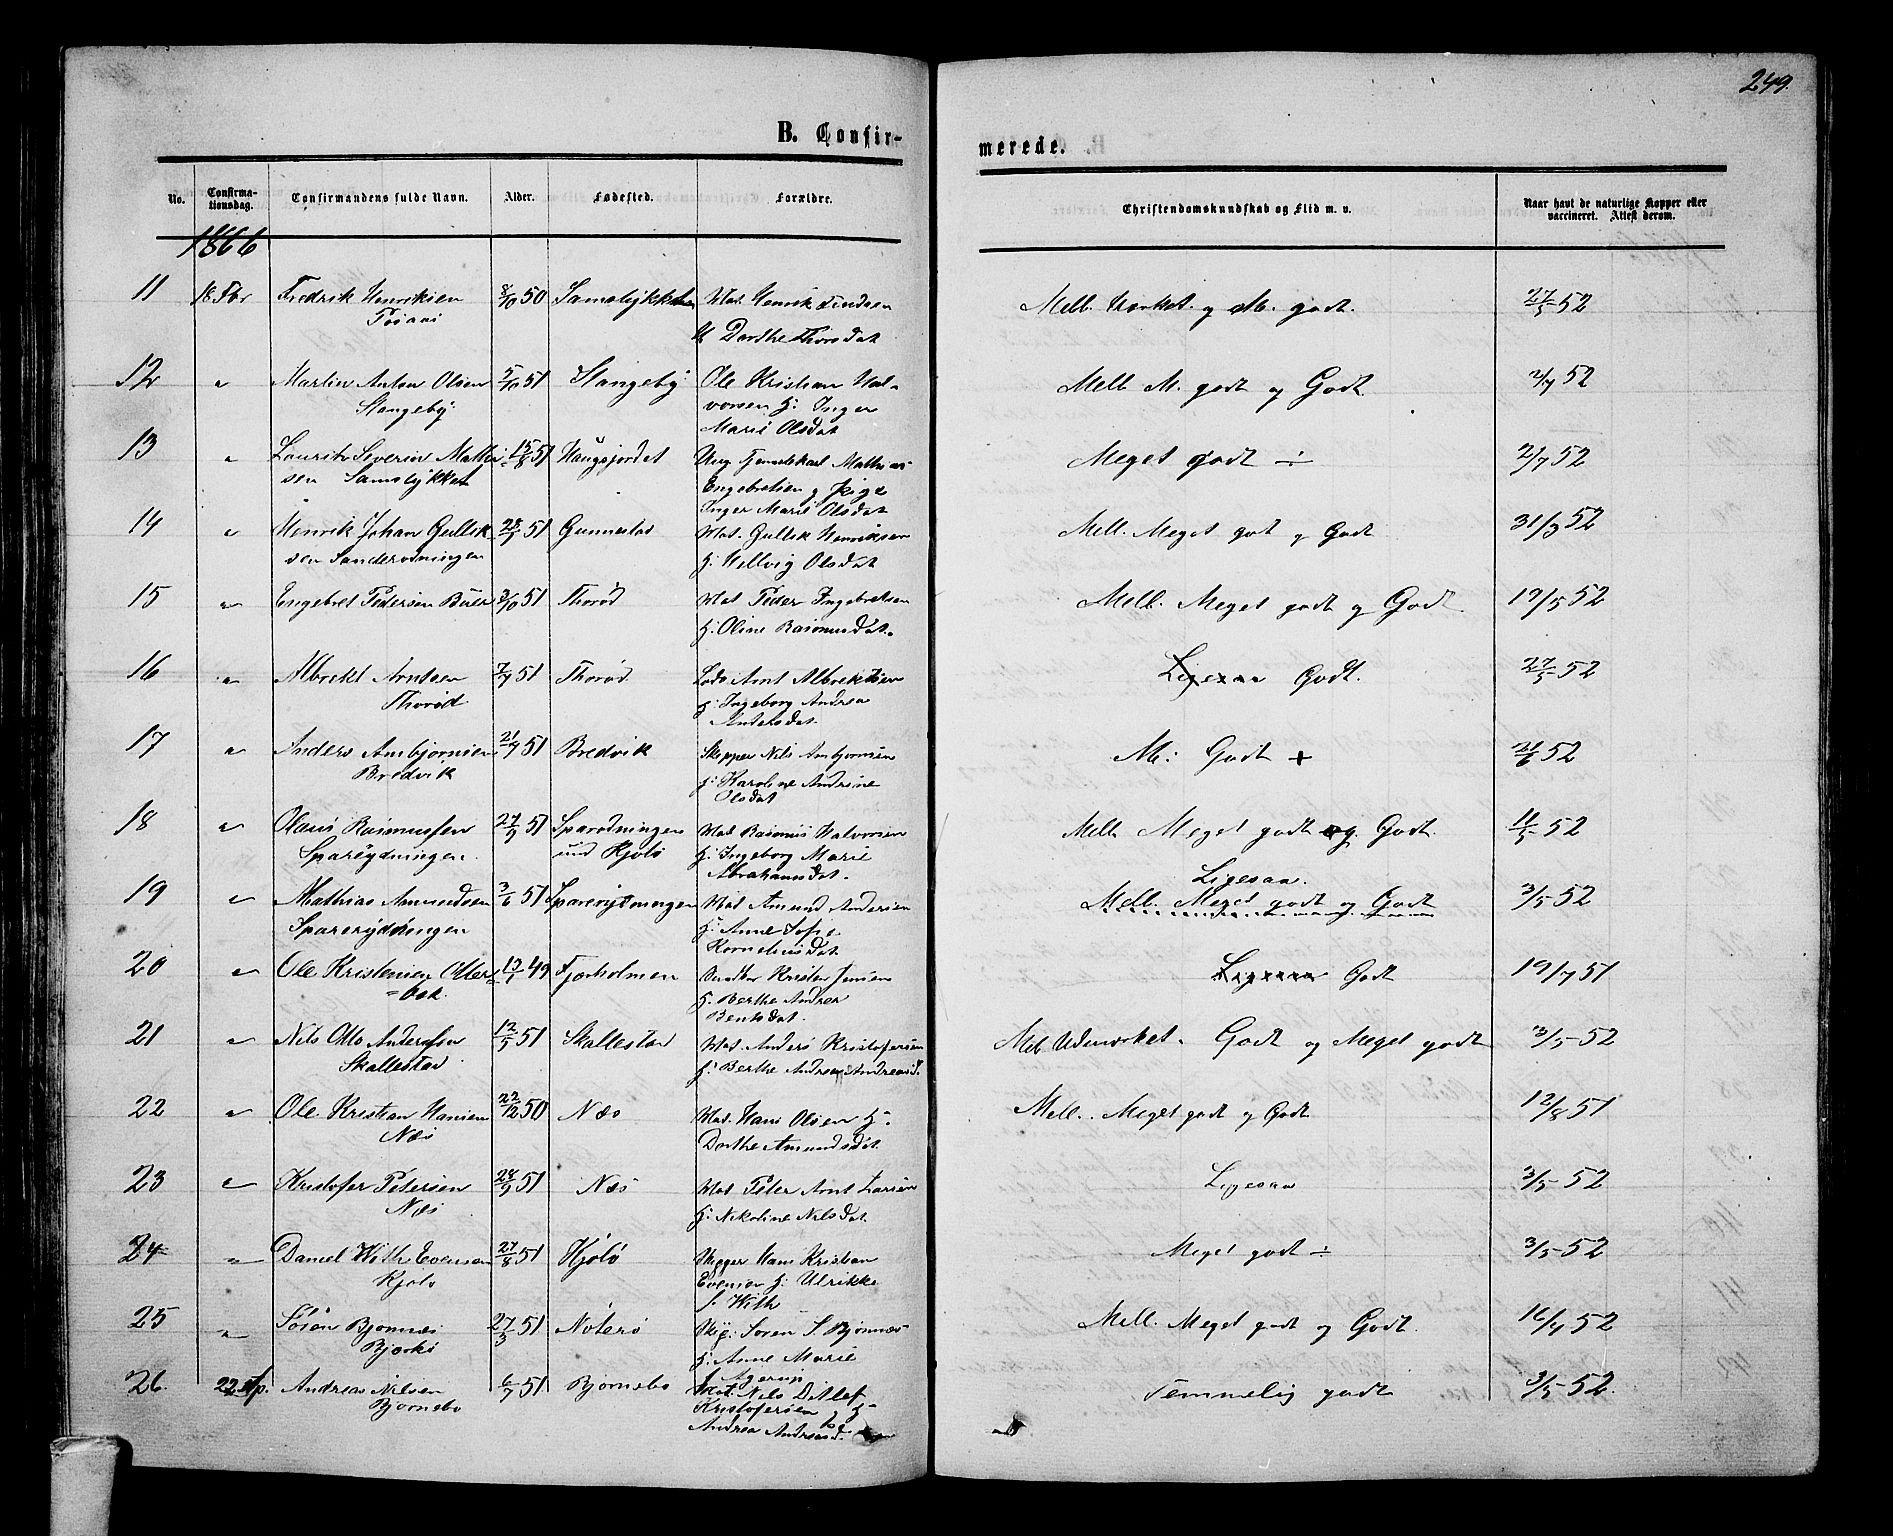 249.
B. Confir-
merede.
No.
Confirma-
tionsdag.
Confirmandens fulde Navn.
Alder.
Fødested.
Forældre.
Christendomskundskab og Flid m. v.
Naar havt de naturlige Kopper eller
vaccineret. Attest derom.
1866
11 18 Fbr Fredrik Henriksen 8/10 50 Mat. Henrik
& Dorthe Thorsdat
Mell. og M. godt. 27/5 52
12 " Martin Anton Olsen 5/10 51 Stangeby Ole Kristian Hal-
Stangeby vorsen H: Inger
Marie Olsdat
Mell M. godt og Godt 2/7 52
13 " Laurits Severin Mathi- 15/8 51 Haugsjordet Ung
sen Samslykket Engebretsen og Pige
Inger Marie Olsdat
Meget godt ÷ 2/7 52
14 " Henrik Johan Gullik 51 Gunnestad Mat. Gullik Henriksen
sen Sanderødningen H. Hellvig Olsdat
Mell. Meget godt og Godt 31/3 52
15 " Engebret Pedersen Buer 3/10 51 Thorød Mat Peder Ingebretsen
H: Oline Rasmusdat.
Mell. Meget godt og Godt 19/5 52
16 " Albrekt Arntsen 7/7 51 Thorød Lods Arnt Albrektsen
Thorød H. Ingeborg Andrea
Andersdat.
Ligesaa Godt. 27/5 52
17 " Anders Ambjørnsen 21/7 51 Bredvik Skipper Nils Ambjørnsen
Bredvik H: Karoline Andrine
Olsdat
M: Godt + 52
18 " Olaus Rasmussen 27/9 51 Sparødningen Mat Rasmus Halvorsen
Sparrydningen. und Kjølø H: Ingeborg Marie
Abrahamsdat.
Mell Meget godt og Godt. 11/5 52
Ligesaa.
19 " Mathias Amundsen 3/6 51 Sparrrydningen Mat Amund Andersen
Sparerydningen H: Anne Sofie
Korneliusdat.
Mell. Meget godt og Godt 3/5 52
20 " Ole Kristensen Oller 49 Fjærholmen Kristen Jensen
=bæk. H. Berthe Andrea
Bentsdat.
Ligesaa Godt 19/7 51
21 " Nils Otto Andersen 12/5 51 Skallestad Mat. Anders Kristofersen
Skallestad H: Berthe Andrea Andreasd.
Mel. Udmerket. Godt og Meget godt 3/5 52
22 " Ole Kristian Hansen 22/12 50 Næs Mat. Hans Olsen H.
Næs Dorthe Amundsdat.
Mell. Meget godt og Godt 12/8 51
23 " Kristofer Petersen 28/9 51 Næs Mat Peter Arnt Larsen
Næs H: Nikoline Nilsdat.
Ligesaa 3/5 52
24 " Daniel With Evensen 27/8 51 Kjølø Hans Kristian
Kjølø Evensen H: Ulrikke
f. With
Meget godt ÷ 3/5 52
25 " Søren Bjønnæs 27/3 51 Nøterø Skip. Søren S. Bjønnæs
Bjærkø H: Anne Marie
f. Agerup
Mell. Meget godt og Godt. 16/7 52
26. Andreas Nilsen 6/7 51 Bjørnebo Mat. Nils Ditlef
Bjørnebo Kristofersen og H-
Andrea Andreasd.
Temmelig godt 3/5 52.